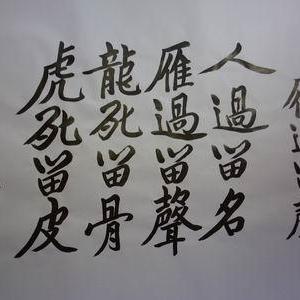 人過留名
雁過留聲
龍死留骨
虎死留皮